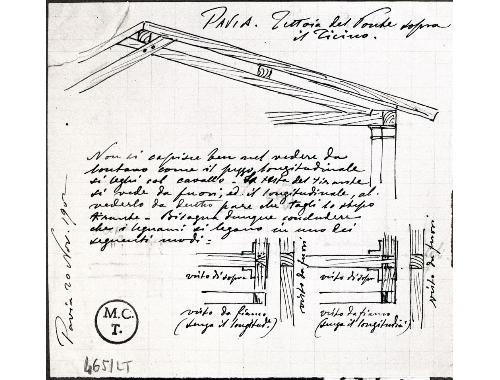 PAVIA. Tettoia del Ponte sopra
il Ticino.
Non si capisce ben nel vedere da
lontano come il pezzo longitudinale
si leghi col cavallo. La testa del tirante
si vede da fuori, ed il longitudinale, al
vederlo da dentro pare che tagli lo stesso
tirante – Bisogna dunque concludere
che i legnami si legano in uno dei
seguenti modi:
Pavia 20 Nov. 1901
visto di sopra
visto da fuori
visto da fianco
(senza il longitud.)
visto di sopra
visto da fuori
visto da fianco
(senza il longitudi.)
M.C.
T.
465/LT